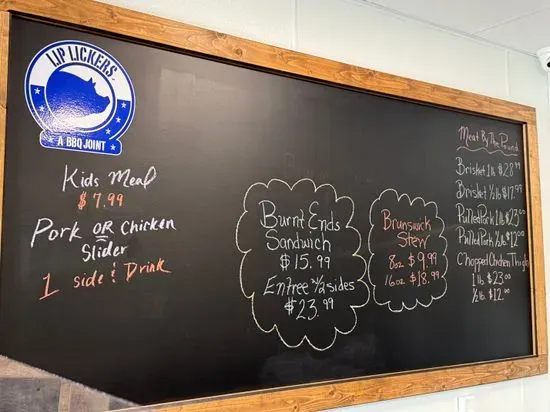 LIP LICKERS'
A BBQ JOINT
Kids Meal
$7.99
Pork OR Chicken
Slider
1 side & Drink
Burnt Ends
Sandwich
$15.99
Entree w/2 sides
$23.99
Brunswick
Stew
8oz $9.99
16oz $18.99
Meat By The Pound
Brisket 1 lb $28.99
Brisket ½ lb $17.99
Pulled Pork 1 lb $23.00
Pulled Pork ½ lb $12.00
Chopped Chicken Thigh
1 lb $23.00
½ lb. $12.00